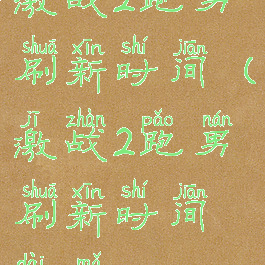 激战2跑男
shuā xīn shí jiān
刷新时间(
jī zhàn pǎo nán
激战2跑男
shuā xīn shí jiān
刷新时间
dài mǎ